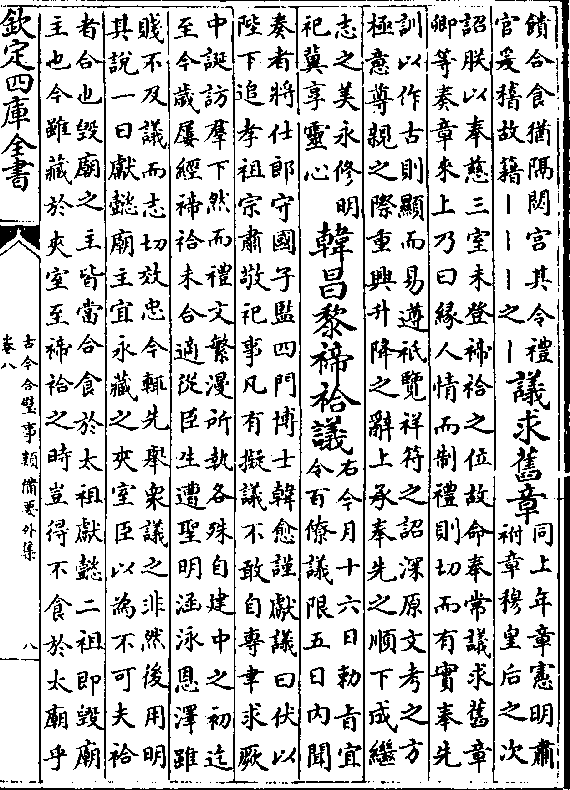 饋合食猶隔閟宮其令禮
官爰稽故籍丨丨丨之丨
議求舊章
同上年章憲明肅
祔章穆皇后之次
詔朕以奉慈三室未登禘祫之位故命奉常議求舊章
卿等奏章來上乃曰緣人情而制禮則切而有實奉先
訓以作古則顯而易遵祇覽祥符之詔深原文考之方
極意尊親之際重興升降之辭上承奉先之順下成繼
志之美永修明
祀冀享靈心
韓昌黎禘祫議
右今月十六日勅旨宜
令百僚議限五日內聞
奏者將仕郎守國子監四門博士韓愈謹獻議曰伏以
陛下追孝祖宗肅敬祀事凡有擬議不敢自專聿求厥
中誕訪羣下然而禮文繁漫所執各殊自建中之初迄
至今歲屢經禘祫未合適從臣生遭聖明涵泳恩澤雖
賤不及議而志切效忠今輒先舉衆議之非然後用明
其說一曰獻懿廟主宜永藏之夾室臣以為不可夫祫
者合也毀廟之主皆當合食於太祖獻懿二祖即毀廟
主也今雖藏於夾室至禘祫之時豈得不食於太廟乎
欽定四庫全書
古今合璧事類備要外集
卷八
八